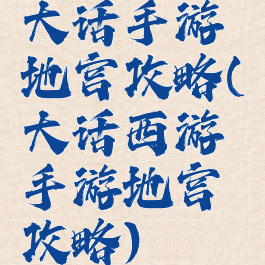 大话手游
地宫攻略(
大话西游
手游地宫
攻略)